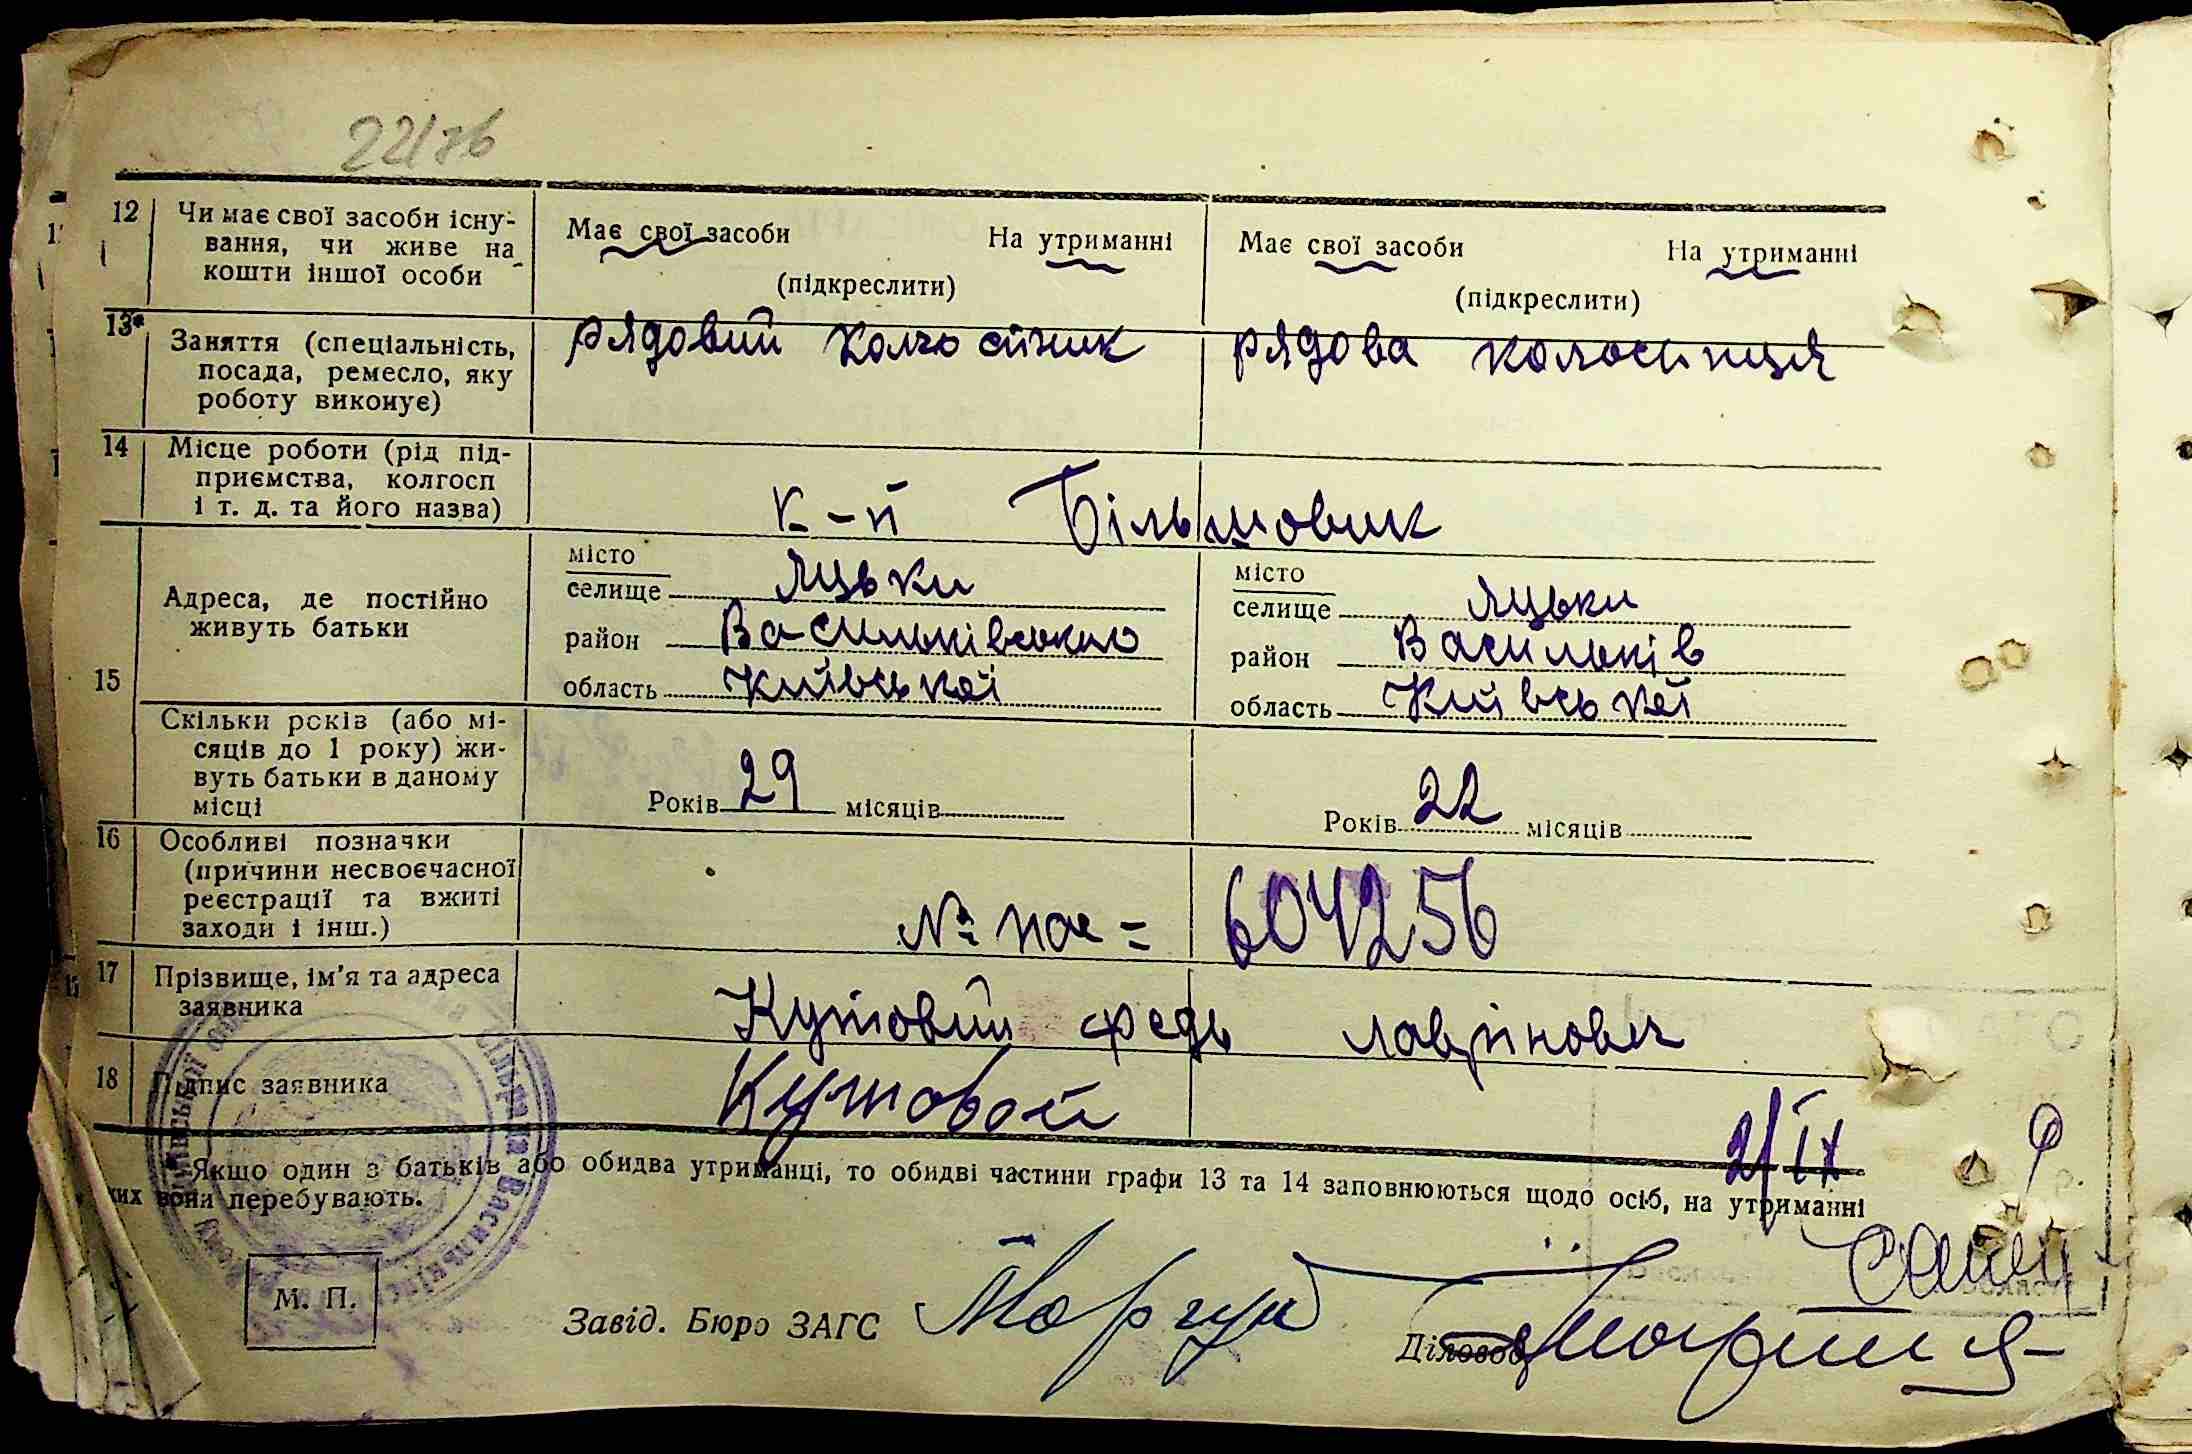 12 Чи має свої засоби існу-
вання, чи живе на
кошти іншої особи
Має свої засоби На утриманні
(підкреслити)
Має свої засоби На утриманні
(підкреслити)
13* Заняття (спеціальність,
посада, ремесло, яку
роботу виконує)
рядовий колгоспник
рядова
14 Місце роботи (рід під-
приємства, колгосп
і т. д. та його назва)
к-п Більшовик
15 Адреса, де постійно
живуть батьки
місто
селище Яцьки
район Васильківського
область Київської
місто
селище Яцьки
район Васильків
область Київської
Скільки років (або мі-
сяців до 1 року) жи-
вуть батьки в даному
місці
Років 29 місяців
Років 22 місяців
16 Особливі позначки
(причини несвоєчасної
реєстрації та вжиті
заходи і інш.)
№ пос = 604256
17 Прізвище, ім'я та адреса
заявника
Кутовий Федь Лаврінович
18 Підпис заявника
Кутовой
2/IX
* Якщо один з батьків або обидва утриманці, то обидві частини графи 13 та 14 заповнюються щодо осіб, на утриманні
яких вони перебувають.
М. П.
Завід. Бюро ЗАГС Моргун
Діловод